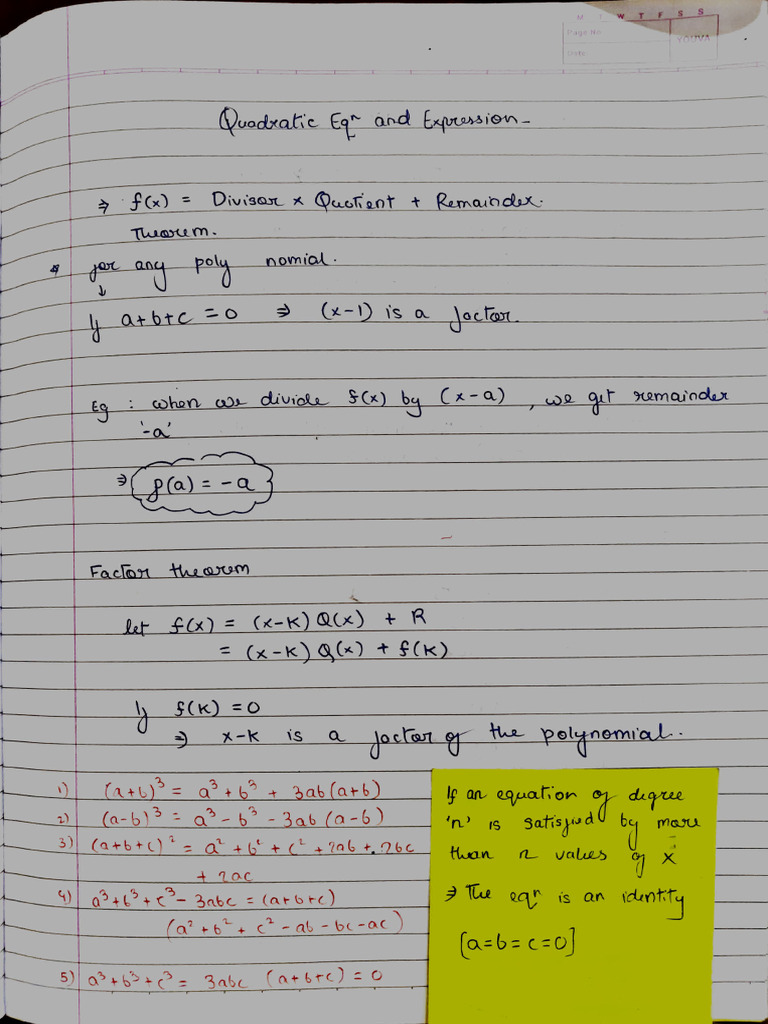 M T W T F S S
Page No.:
Date:
YOUVA
Quadratic Eqn and Expression -
⇒ f(x) = Divisor × Quotient + Remainder.
Theorem.
* for any poly nomial.
↓
If a+b+c = 0 ⇒ (x-1) is a factor.
Eg : when we divide f(x) by (x-a) , we get remainder
'-a'
⇒ f(a) = -a
Factor theorem
let f(x) = (x-k) Q(x) + R
= (x-k) Q(x) + f(k)
If f(k) = 0
⇒ x-k is a factor of the polynomial..
1) (a+b)³ = a³ + b³ + 3ab (a+b)
2) (a-b)³ = a³ - b³ - 3ab (a-b)
3) (a+b+c)² = a² + b² + c² + 2ab + 2bc
+ 2ac
4) a³+b³+c³ - 3abc = (a+b+c)
(a² + b² + c² - ab - bc - ac)
5) a³+b³+c³ = 3abc (a+b+c) = 0
If an equation of degree
'n' is satisfied by more
than n values of x
⇒ The eqn is an identity
[a=b=c=0]